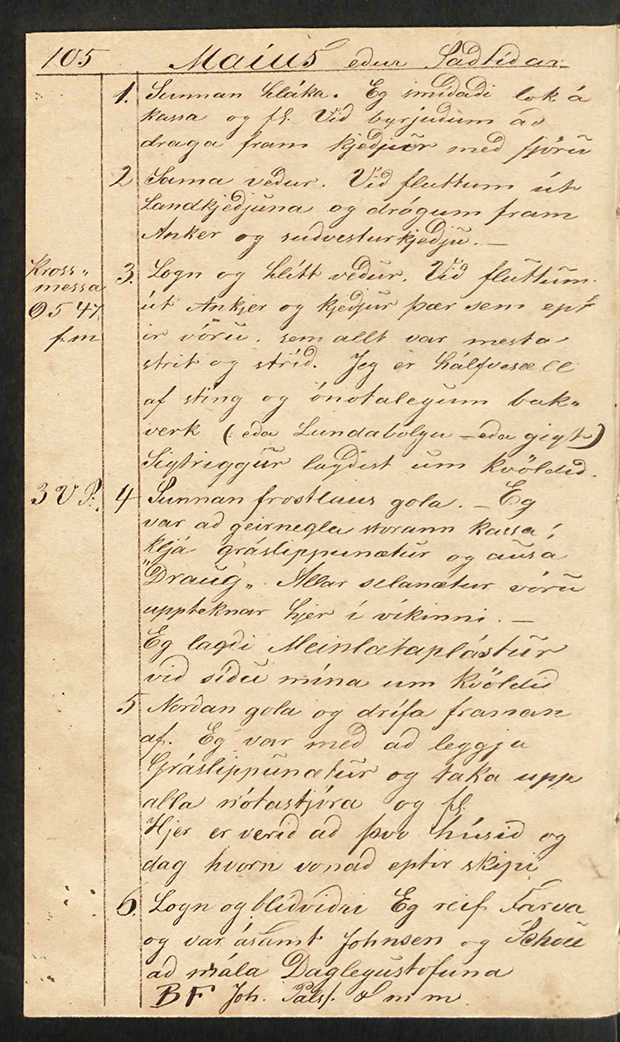 105 Maíus edur Sádtídar.
1. Sunnan hláka. Eg smídadi lok á
kassa og fl. Vid byrjudum ad
draga fram kjedjur med fjöru
2 Sama vedur. Vid fluttum út
Landkjedjuna og drógum fram
Anker og sudvesturkjedju. —
Kross-
messa
5 47
fm
3. Logn og blítt vedur. Vid fluttum
út Ankjer og kjedjur þær sem ept
ir vóru. sem allt var mesta
strit og stríd. Jeg er hálfvesæll
af sting og ónotalegum bak-
verk (: eda Lundabólgu - eda gigt)
Sigtriggur lagdist um kvöldid.
3 V P. 4 Sunnan frostlaus gola. - Eg
var ad geirnegla storann kassa,
kljá gráslippunætur og ausa
"Draug". Allar selanætur vóru
uppteknar hjer í vikinni. —
Eg lagdi Meinlætaplástur
vid sídu mína um kvöldid
5 Nordan gola og drífa framan
af. Eg var med ad leggja
Gráslippunætur og taka upp
alla nótastjóra og fl.
Hjer er verid ad þvo húsid og
dag hvorn vonad eptir skipi
6. Logn og blídvidri Eg reif Farva
og var ásamt Johnsen og Schou
ad mála Daglegustofuna
B F Joh. Páls/.